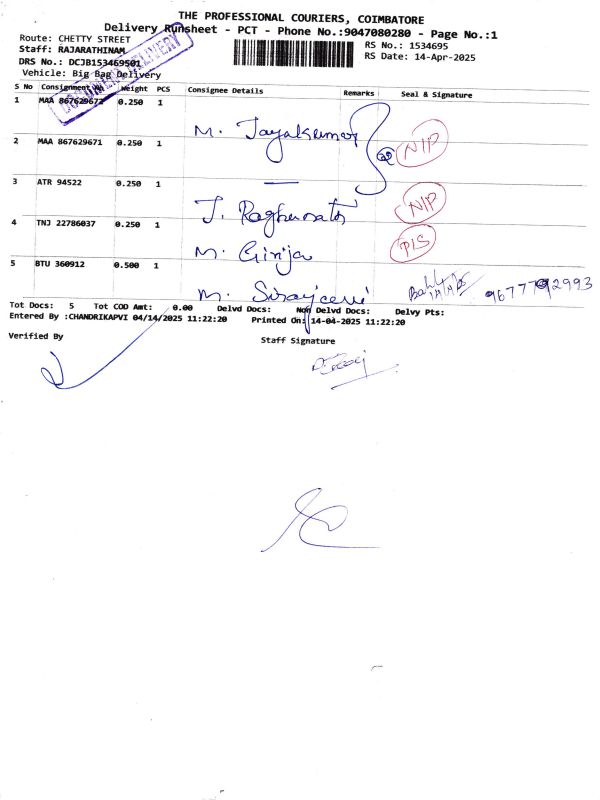 THE PROFESSIONAL COURIERS, COIMBATORE
Delivery Runsheet - PCT - Phone No.:9047080280 - Page No.:1
Route: CHETTY STREET
RS No.: 1534695
Staff: RAJARATHINAM
RS Date: 14-Apr-2025
DRS No.: DCJB153469501
Vehicle: Big Bag Delivery
DELIVERY
S No Consignment No Weight PCS Consignee Details Remarks Seal & Signature
1 MAA 867629672 0.250 1
M. Jayakumar
2 MAA 867629671 0.250 1
NIP
3 ATR 94522 0.250 1 —
J. Raghunath NIP
4 TNJ 22786037 0.250 1
M. Girija PIS
5 BTU 360912 0.500 1
M.
Tot Docs: 5 Tot COD Amt: 0.00 Delvd Docs: Non Delvd Docs: Delvy Pts:
Entered By :CHANDRIKAPVI 04/14/2025 11:22:20 Printed On: 14-04-2025 11:22:20
Verified By
Staff Signature